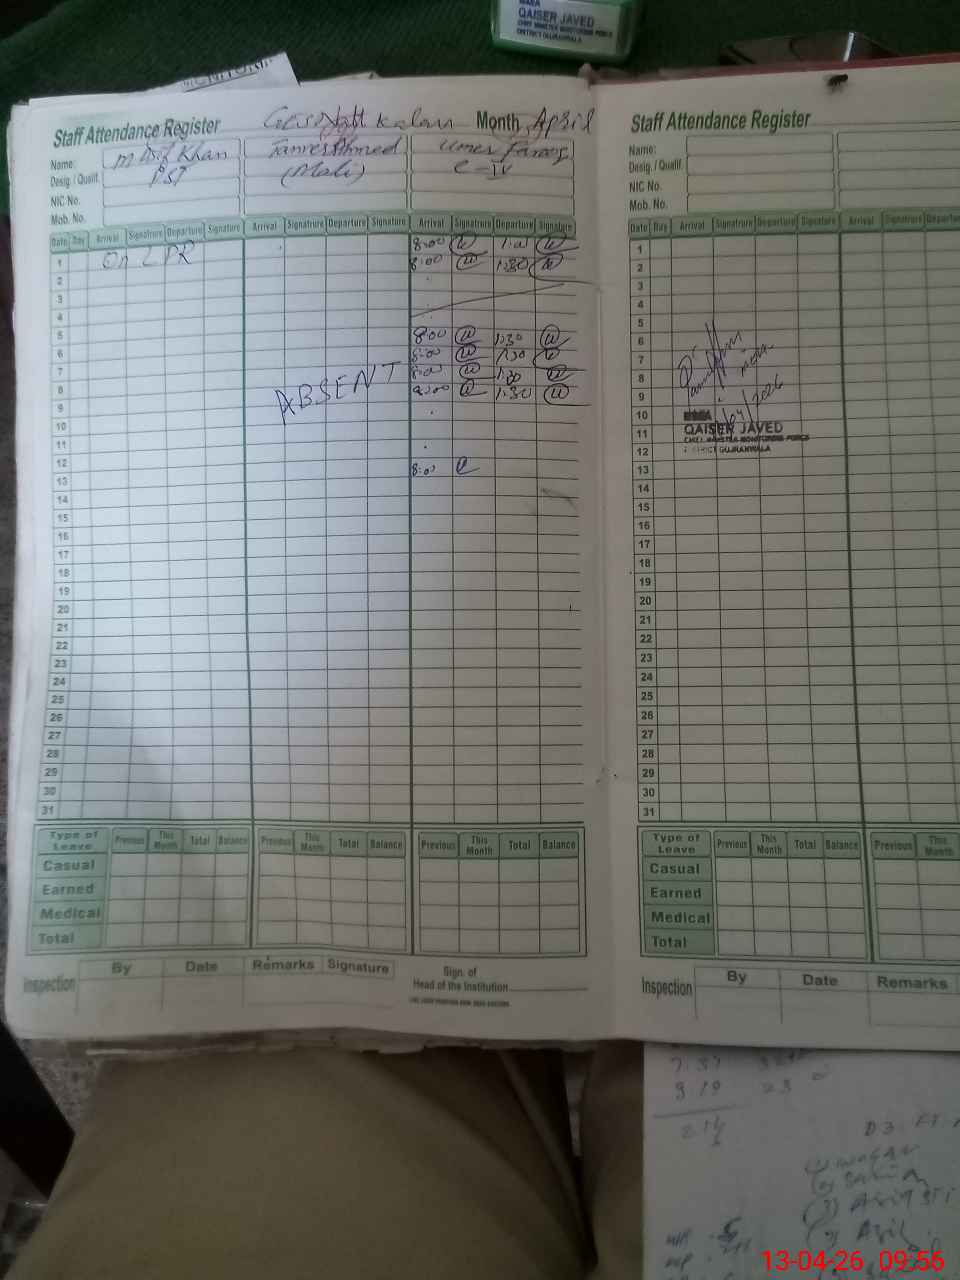 MEA
QAISER JAVED
CHIEF MINISTER MONITORING FORCE
DISTRICT GUJRANWALA
Staff Attendance Register
Kalan Month April
Name: M Asif Khan Tanveer Ahmed Umer Farooq
Desig. / Qualif. PST (Mali) C-IV
NIC No.
Mob. No.
Date Day Arrival Signatrure Departure Signatrure Arrival Signatrure Departure Signatrure Arrival Signatrure Departure Signatrure
1 On LPR 8:00 1:00
2 8:00 1:30
3
4
5
6 8:00 1:30
7 8:00 1:30
8 8:00 1:30
9 ABSENT 8:00 1:30
10
11
12
13 8:00
14
15
16
17
18
19
20
21
22
23
24
25
26
27
28
29
30
31
Type of Leave Previous This Month Total Balance Previous This Month Total Balance Previous This Month Total Balance
Casual
Earned
Medical
Total
Inspection By Date Remarks Signature
Sign. of
Head of the Institution
Staff Attendance Register
Name:
Desig. / Qualif.
NIC No.
Mob. No.
Date Day Arrival Signatrure Departure Signatrure Arrival Signatrure Departure
1
2
3
4
5
6
7
8
9
10
11
12
13
14
15
16
17
18
19
20
21
22
23
24
25
26
27
28
29
30
31
MEA
QAISER JAVED
CHIEF MINISTER MONITORING FORCE
DISTRICT GUJRANWALA
Type of Leave Previous This Month Total Balance Previous This Month
Casual
Earned
Medical
Total
Inspection By Date Remarks
7:37
9:19 23
13-04-26 09:56